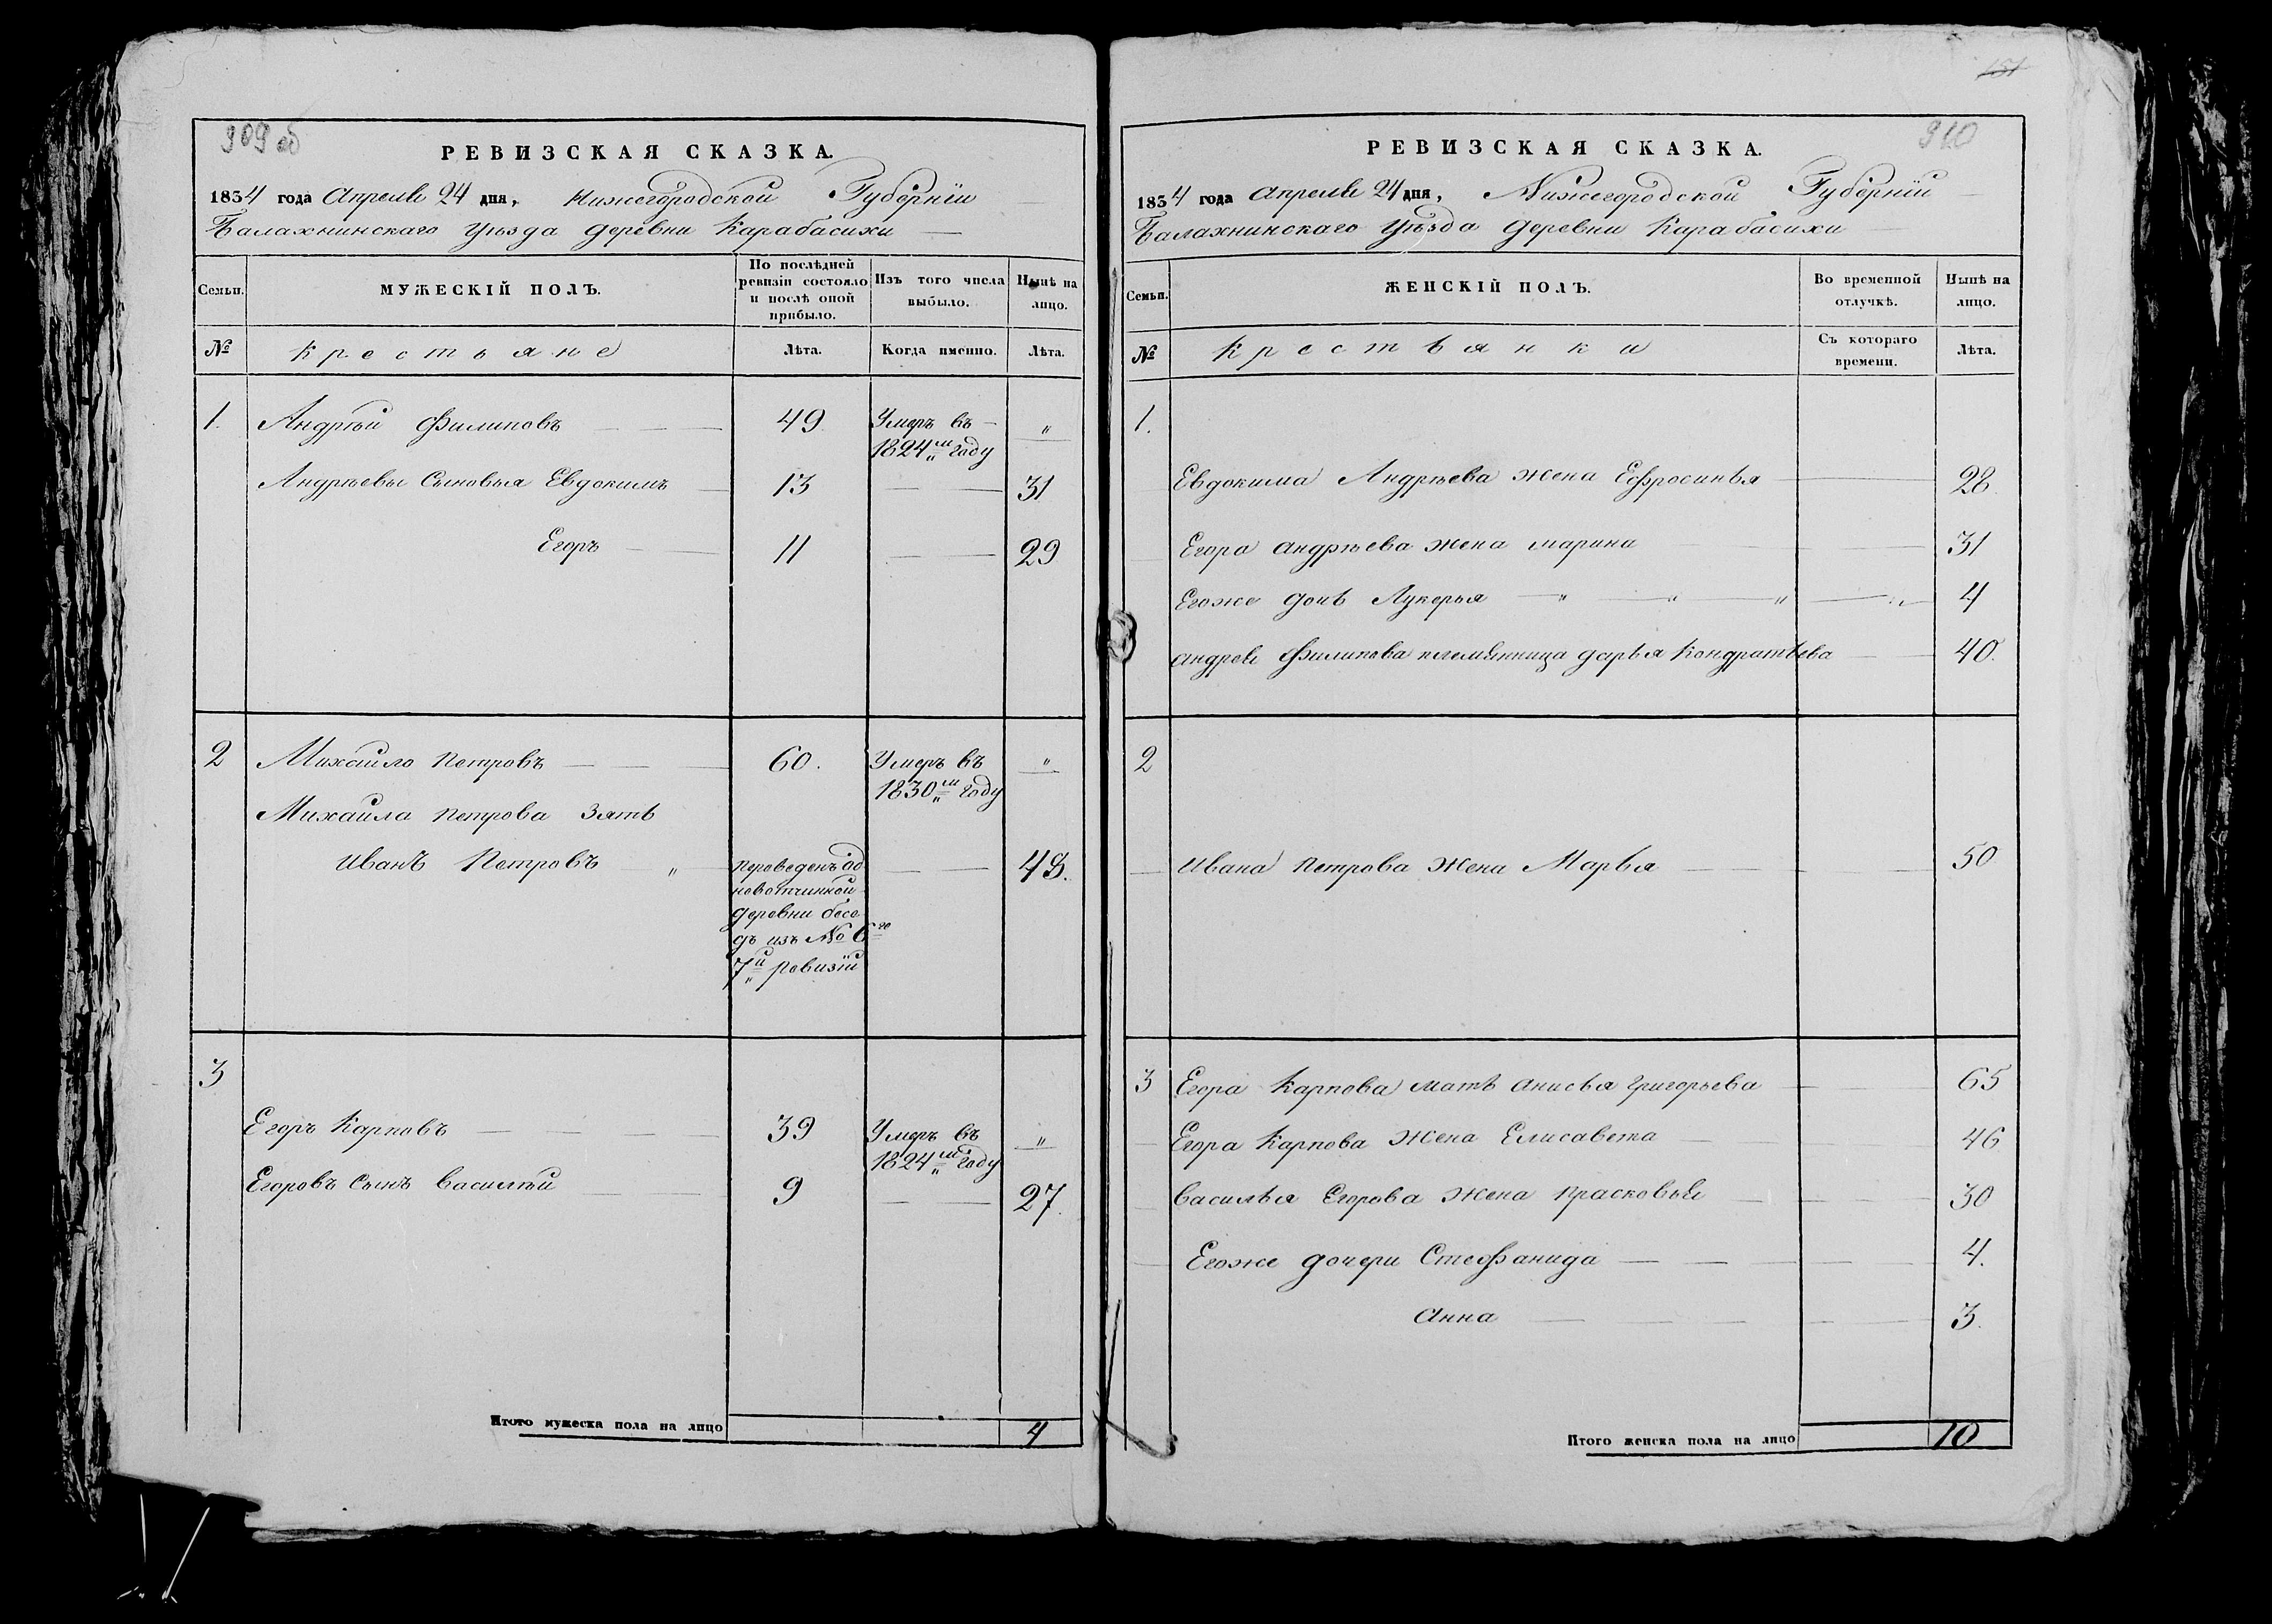 909 об
РЕВИЗСКАЯ СКАЗКА.
1834 года Апреля 24 дня, Нижегородской Губернїи
Балахнинскаго Уѣзда деревни Карабасихи
Семьи. МУЖЕСКІЙ ПОЛЪ. По послѣдней ревизіи состояло и послѣ оной прибыло. Изъ того числа выбыло. Нынѣ на лицо.
№ Крестьяне Лѣта. Когда именно. Лѣта.
1. Андрѣй Филиповъ 49 Умеръ въ 1824м году „
Андрѣевы Сыновья Евдокимъ 13 31
Егоръ 11 29
2 Михайло Петровъ 60. Умеръ въ 1830м году „
Михайла Петрова Зять
Иванъ Петровъ „ переведенъ од
новотчинной
деревни бесе
дъ изъ № 6го
7й ревизїи 48.
3
Егоръ Карповъ 39 Умеръ въ 1824м году „
Егоровъ Сынъ Василѣй 9 27.
Итого мужеска пола на лицо 4
151
910
РЕВИЗСКАЯ СКАЗКА.
1834 года Апреля 24 дня, Нижегородской Губернїи
Балахнинскаго Уѣзда Деревни Карабасихи
Семьи. ЖЕНСКІЙ ПОЛЪ. Во временной отлучкѣ. Нынѣ на лицо.
№ Крестьянки Съ котораго времени. Лѣта.
1.
Евдокима Андрѣева жена Ефросинья 28
Егора Андрѣева жена Марина 31
Егоже дочь Лукерья „ „ „ „ 4
Андрея Филипова племянница дарья Кондратьева 40.
2
Ивана Петрова Жена Марья 50
3 Егора Карпова мать Анисья Григорьева 65
Егора Карпова Жена Елисавета 46
Василья Егорова Жена Прасковья 30
Егоже дочери Стефанида 4.
Анна 3.
Итого женска пола на лицо 10